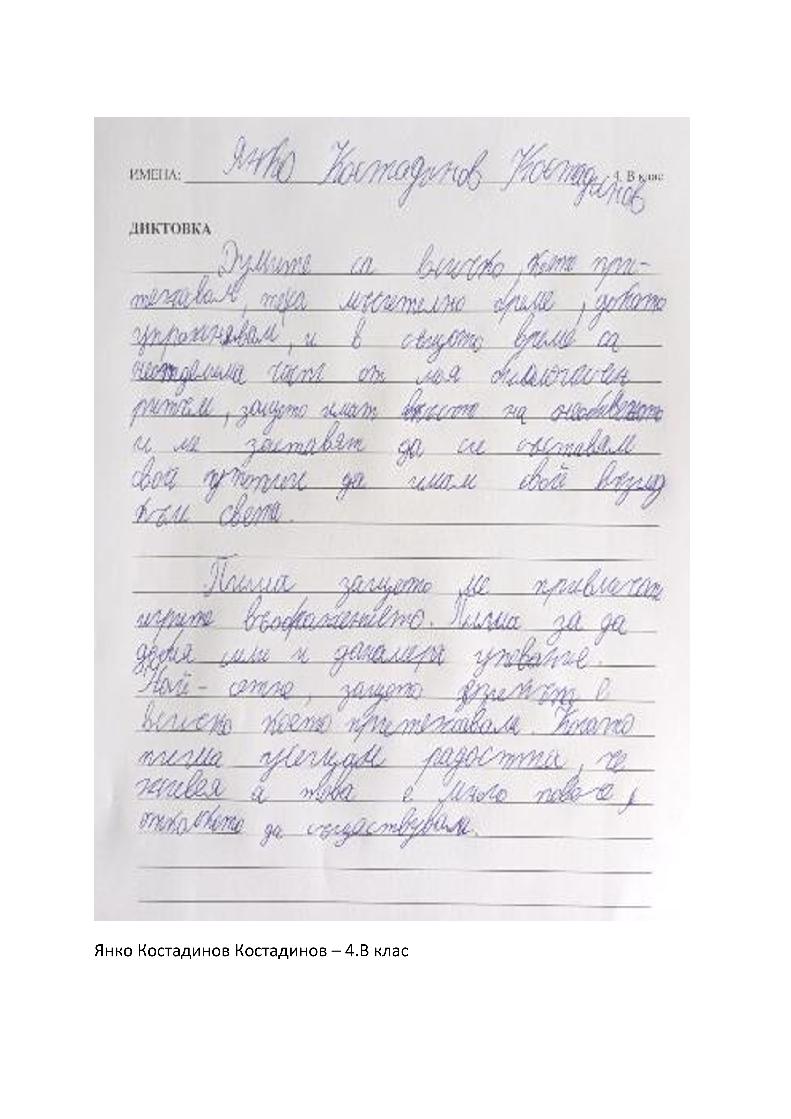 ИМЕНА: Янко Костадинов Костадинов 4. В клас
ДИКТОВКА
Думите са всичко, което при-
тежавам, това мъчително време, докато
упражнявам, и в същото време са
неотделима част от моя биологичен
ритъм, защото имат
и ме заставят да си съставям
свой да имам свой възглед
към света.
Пиша защото ме привличат
игрите въображението. Пиша за да
дебна или и упование.
Най-сетне, защото в
всичко което притежавам. Когато
пиша усещам радостта, че
живея а това е много повече,
отколкото да съществувам.
Янко Костадинов Костадинов – 4.В клас